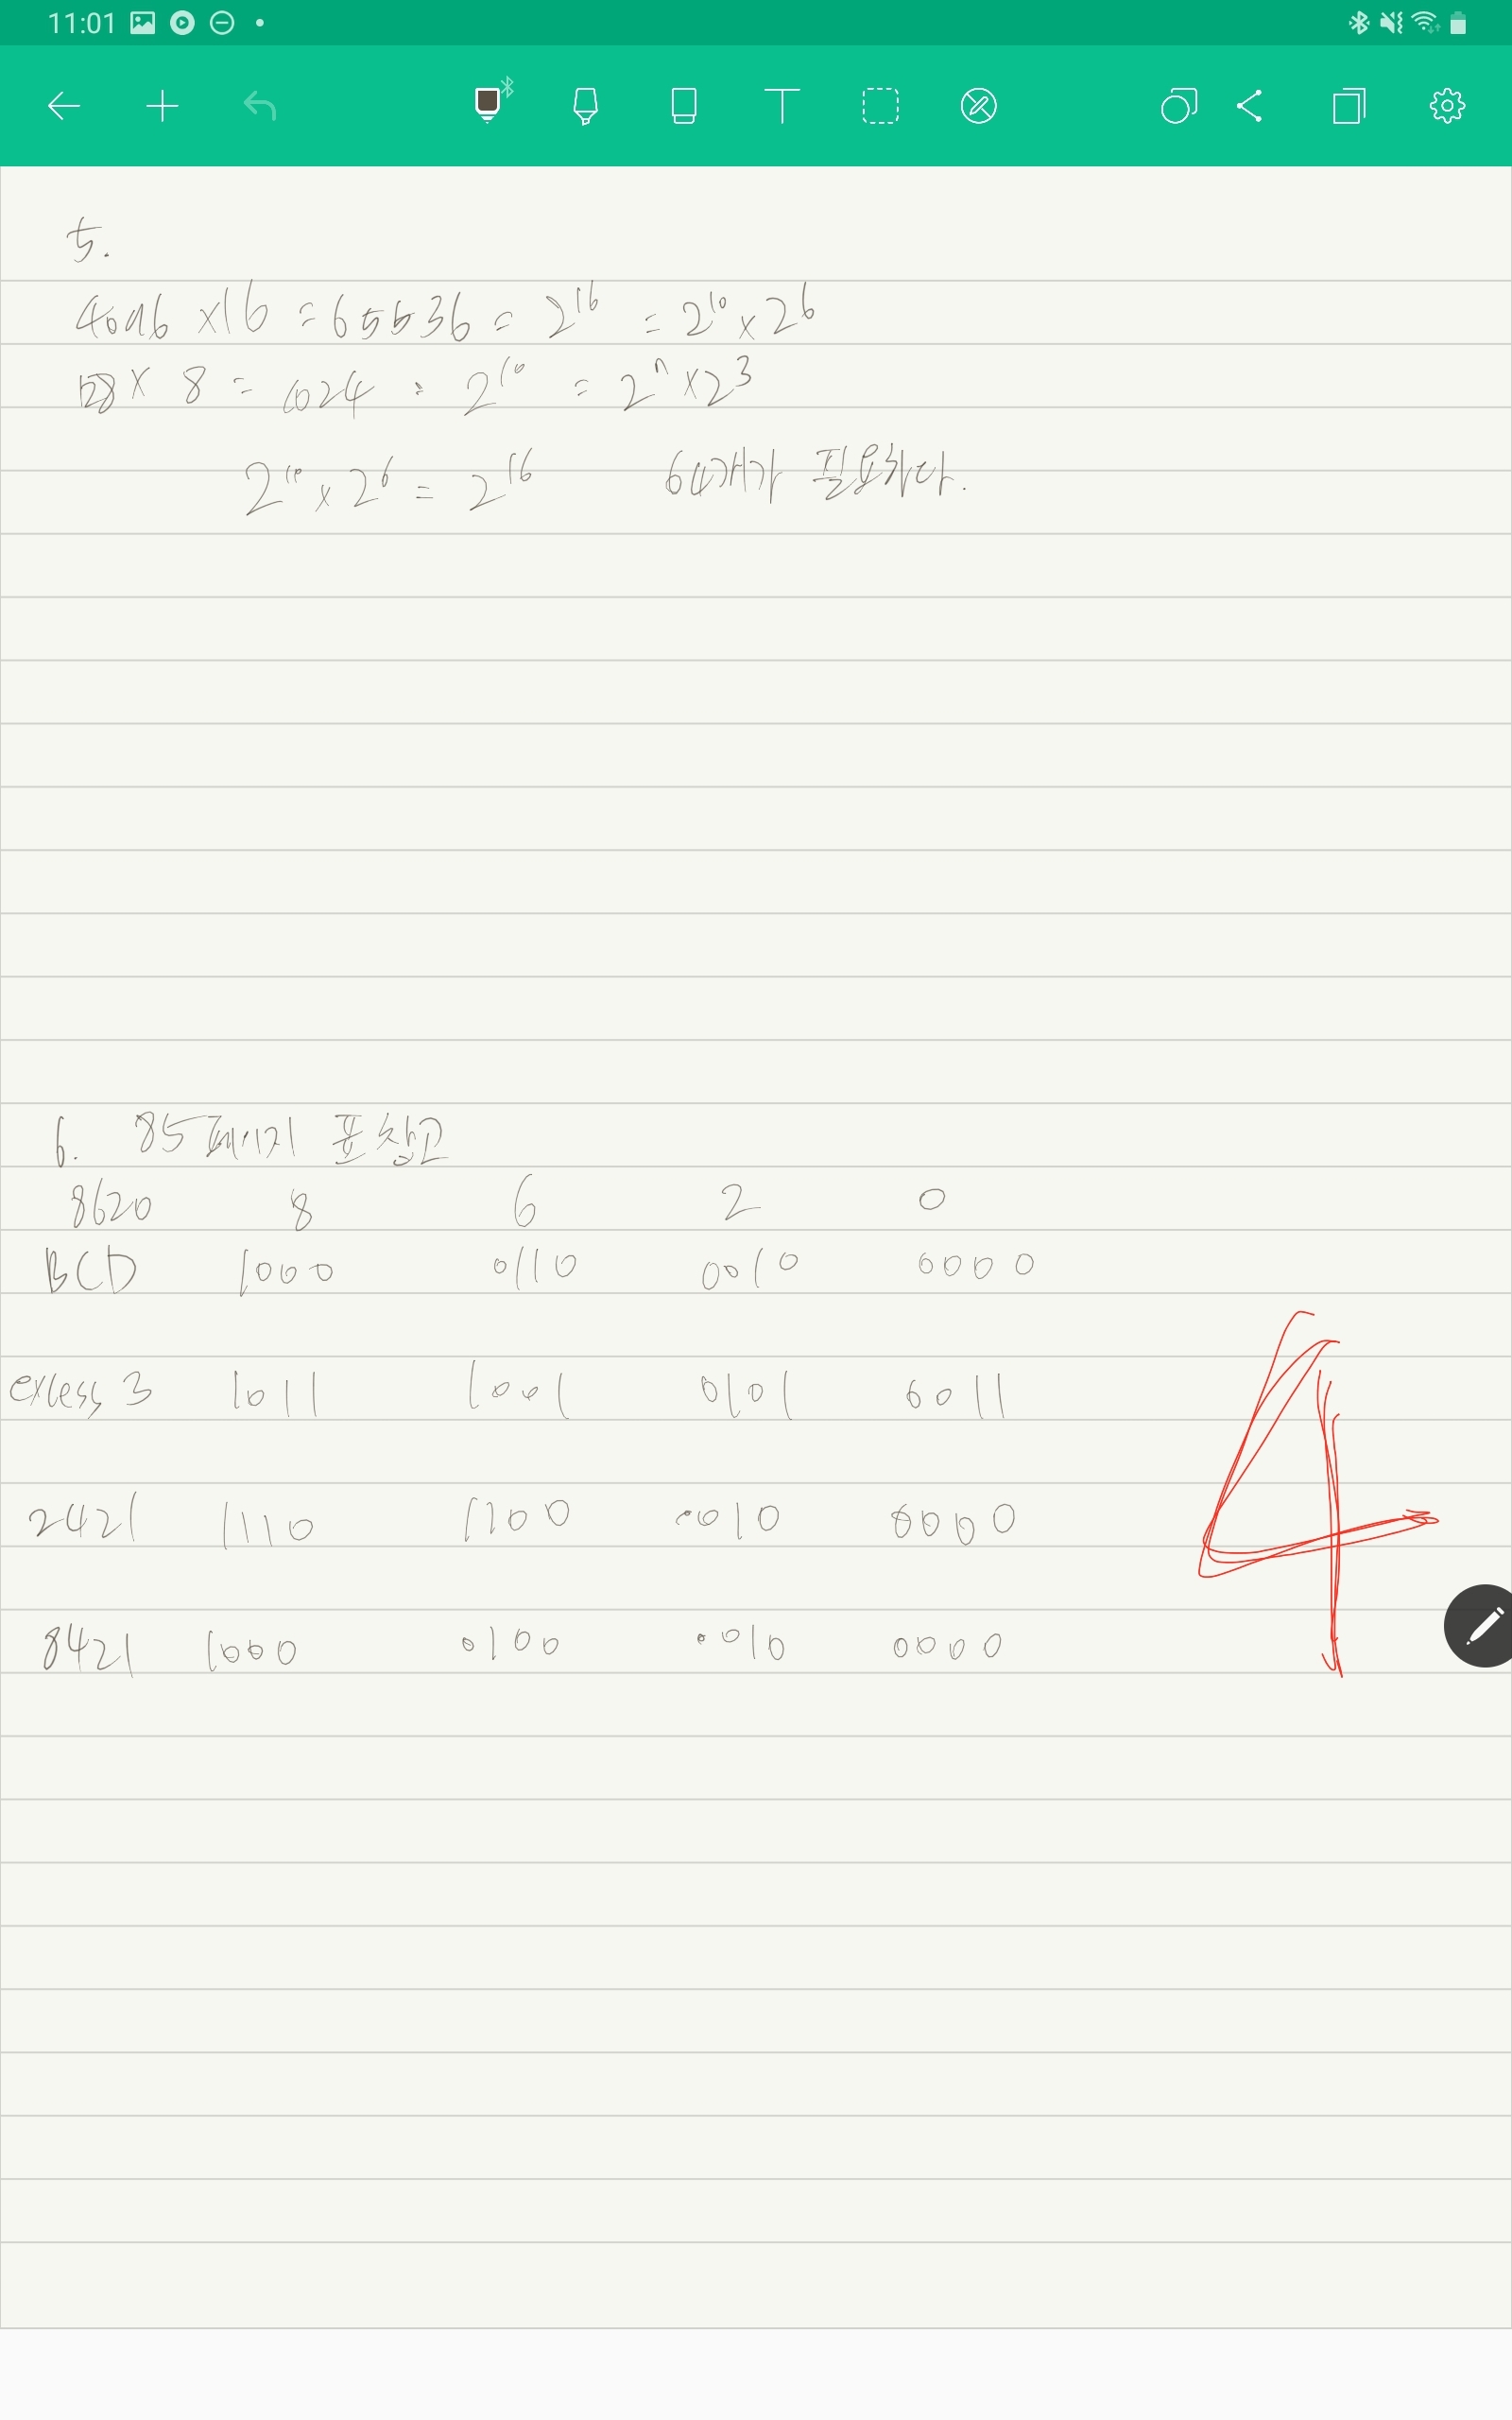 11:01
5.
4096 × 16 = 65536 = 2^16 = 2^10 × 2^6
128 × 8 = 1024 = 2^10 = 2^7 × 2^3
2^10 × 2^6 = 2^16 64개가 필요하다.
6. 85페이지 표 참고
8620 8 6 2 0
BCD 1000 0110 0010 0000
excess 3 1011 1001 0101 0011
2421 1110 1100 0010 0000
8421 1000 0100 0010 0000
4